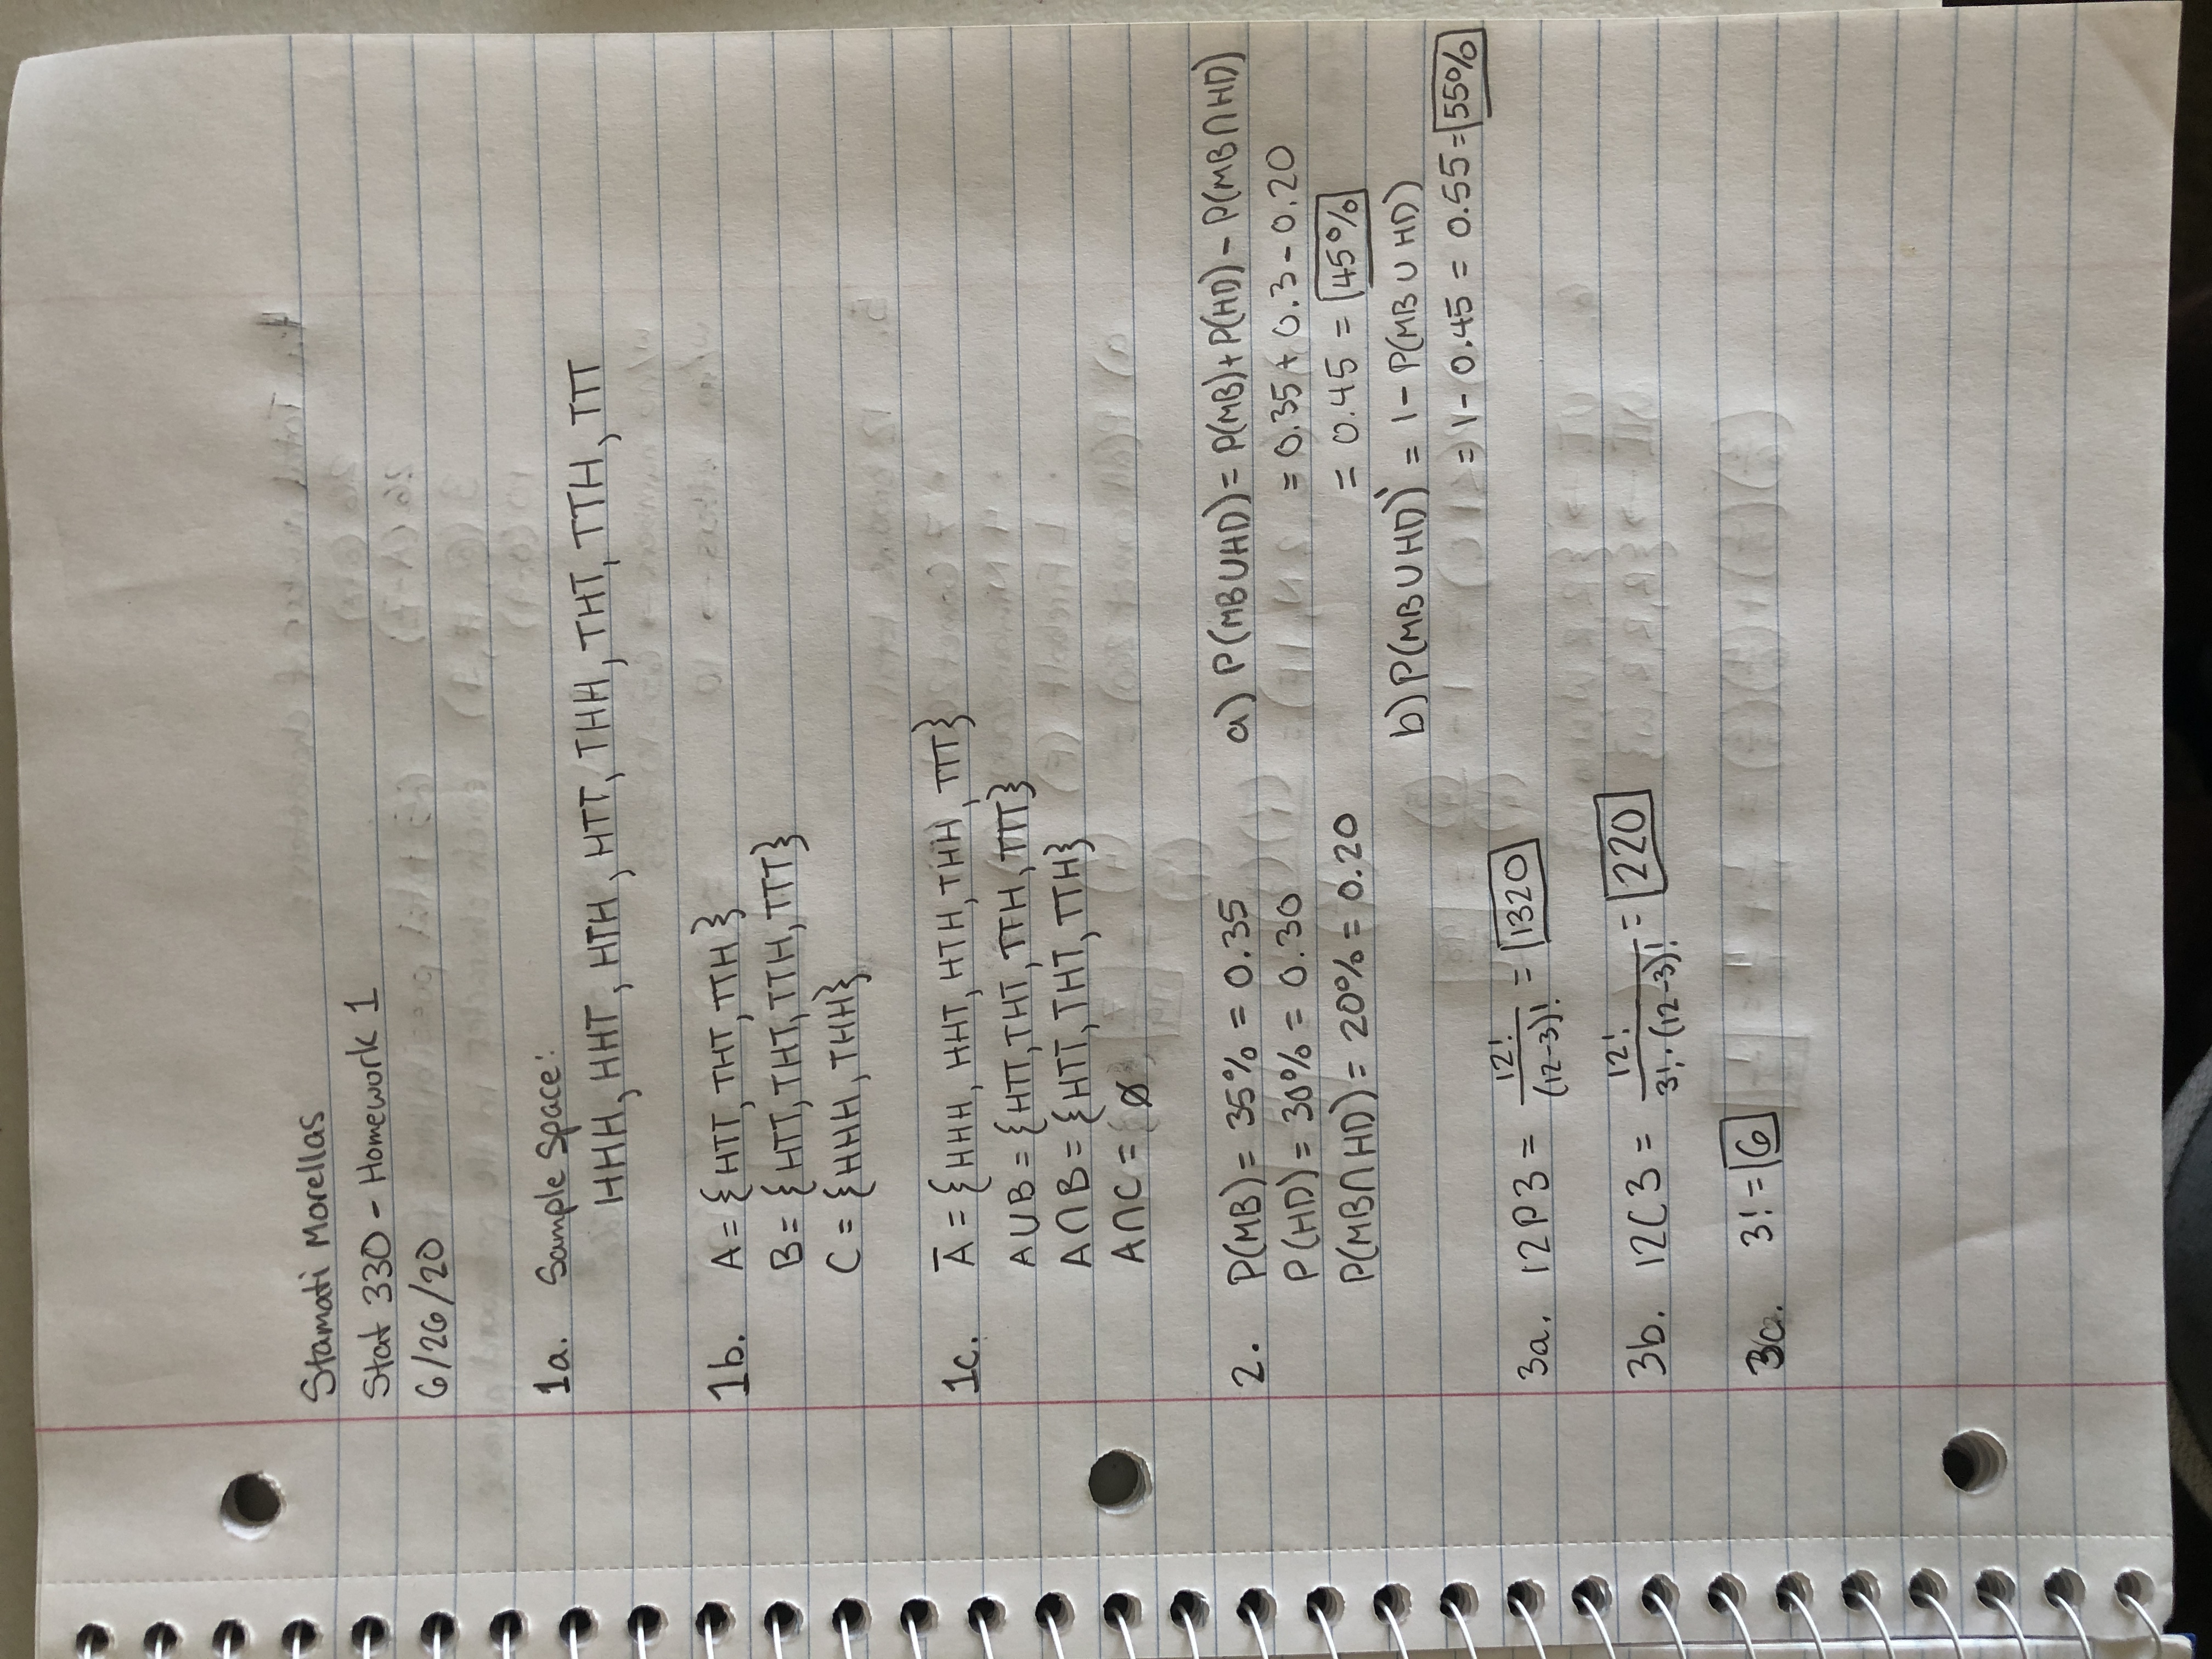 Stamati Morellas
Stat 330 - Homework 1
6/26/20
1a. Sample Space:
HHH, HHT, HTH, HTT, THH, THT, TTH, TTT
1b. A = {HTT, THT, TTH}
B = {HTT, THT, TTH, TTT}
C = {HHH, THH}
1c. A̅ = {HHH, HHT, HTH, THH, TTT}
A∪B = {HTT, THT, TTH, TTT}
A∩B = {HTT, THT, TTH}
A∩C = ∅
2. P(MB) = 35% = 0.35
P(HD) = 30% = 0.30
P(MB∩HD) = 20% = 0.20
a) P(MB∪HD) = P(MB) + P(HD) - P(MB∩HD)
= 0.35 + 0.3 - 0.20
= 0.45 = 45%
b) P(MB∪HD)' = 1 - P(MB∪HD)
= 1 - 0.45 = 0.55 = 55%
3a. 12P3 = 12! / (12-3)! = 1320
3b. 12C3 = 12! / 3!·(12-3)! = 220
3c. 3! = 6